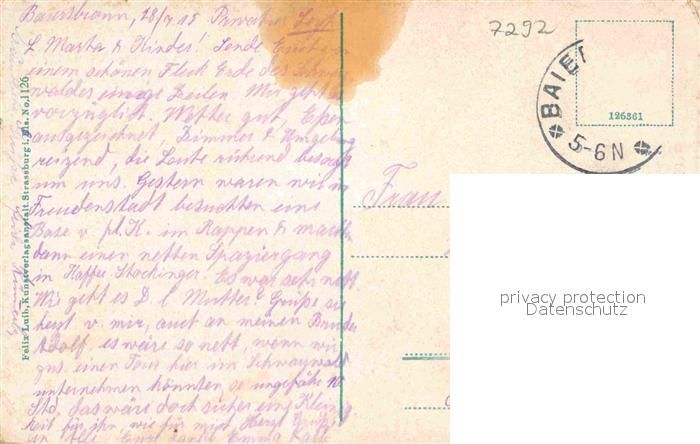 Baiersbronn, 28/7 15 Privathaus
L. Martha & Kinder! Sende Euch von
einem schönen Fleck Erde des Schwarz
waldes einige Zeilen. Mir geht es
vorzüglich. Wetter gut, Essen
ausgezeichnet Zimmer & Umgebung
reizend, die Leute rührend besorgt
um uns. Gestern waren wir in
Freudenstadt besuchten eine
Base v. frl. K. im Rappen & machten
dann einen netten Spaziergang
in Kaffee Stockinger. Es war sehr nett.
Wie geht es D. l. Mutter? Grüße sie
herzl. v. mir, auch an meinen Bruder
Adolf es wäre so nett, wenn wir
zus. einen Tour hier im Schwarzwald
unternehmen könnten so ungefähr 10
Std, das wäre doch sicher eine Kleinig
keit für ihn, wie für mich. Herzl. Grüße
an Alle Emma
Felix Luib, Kunstverlagsanstalt, Strassburg i. Els. No. 1126
7292
BAIER
5-6N
126361
Frau
privacy protection
Datenschutz